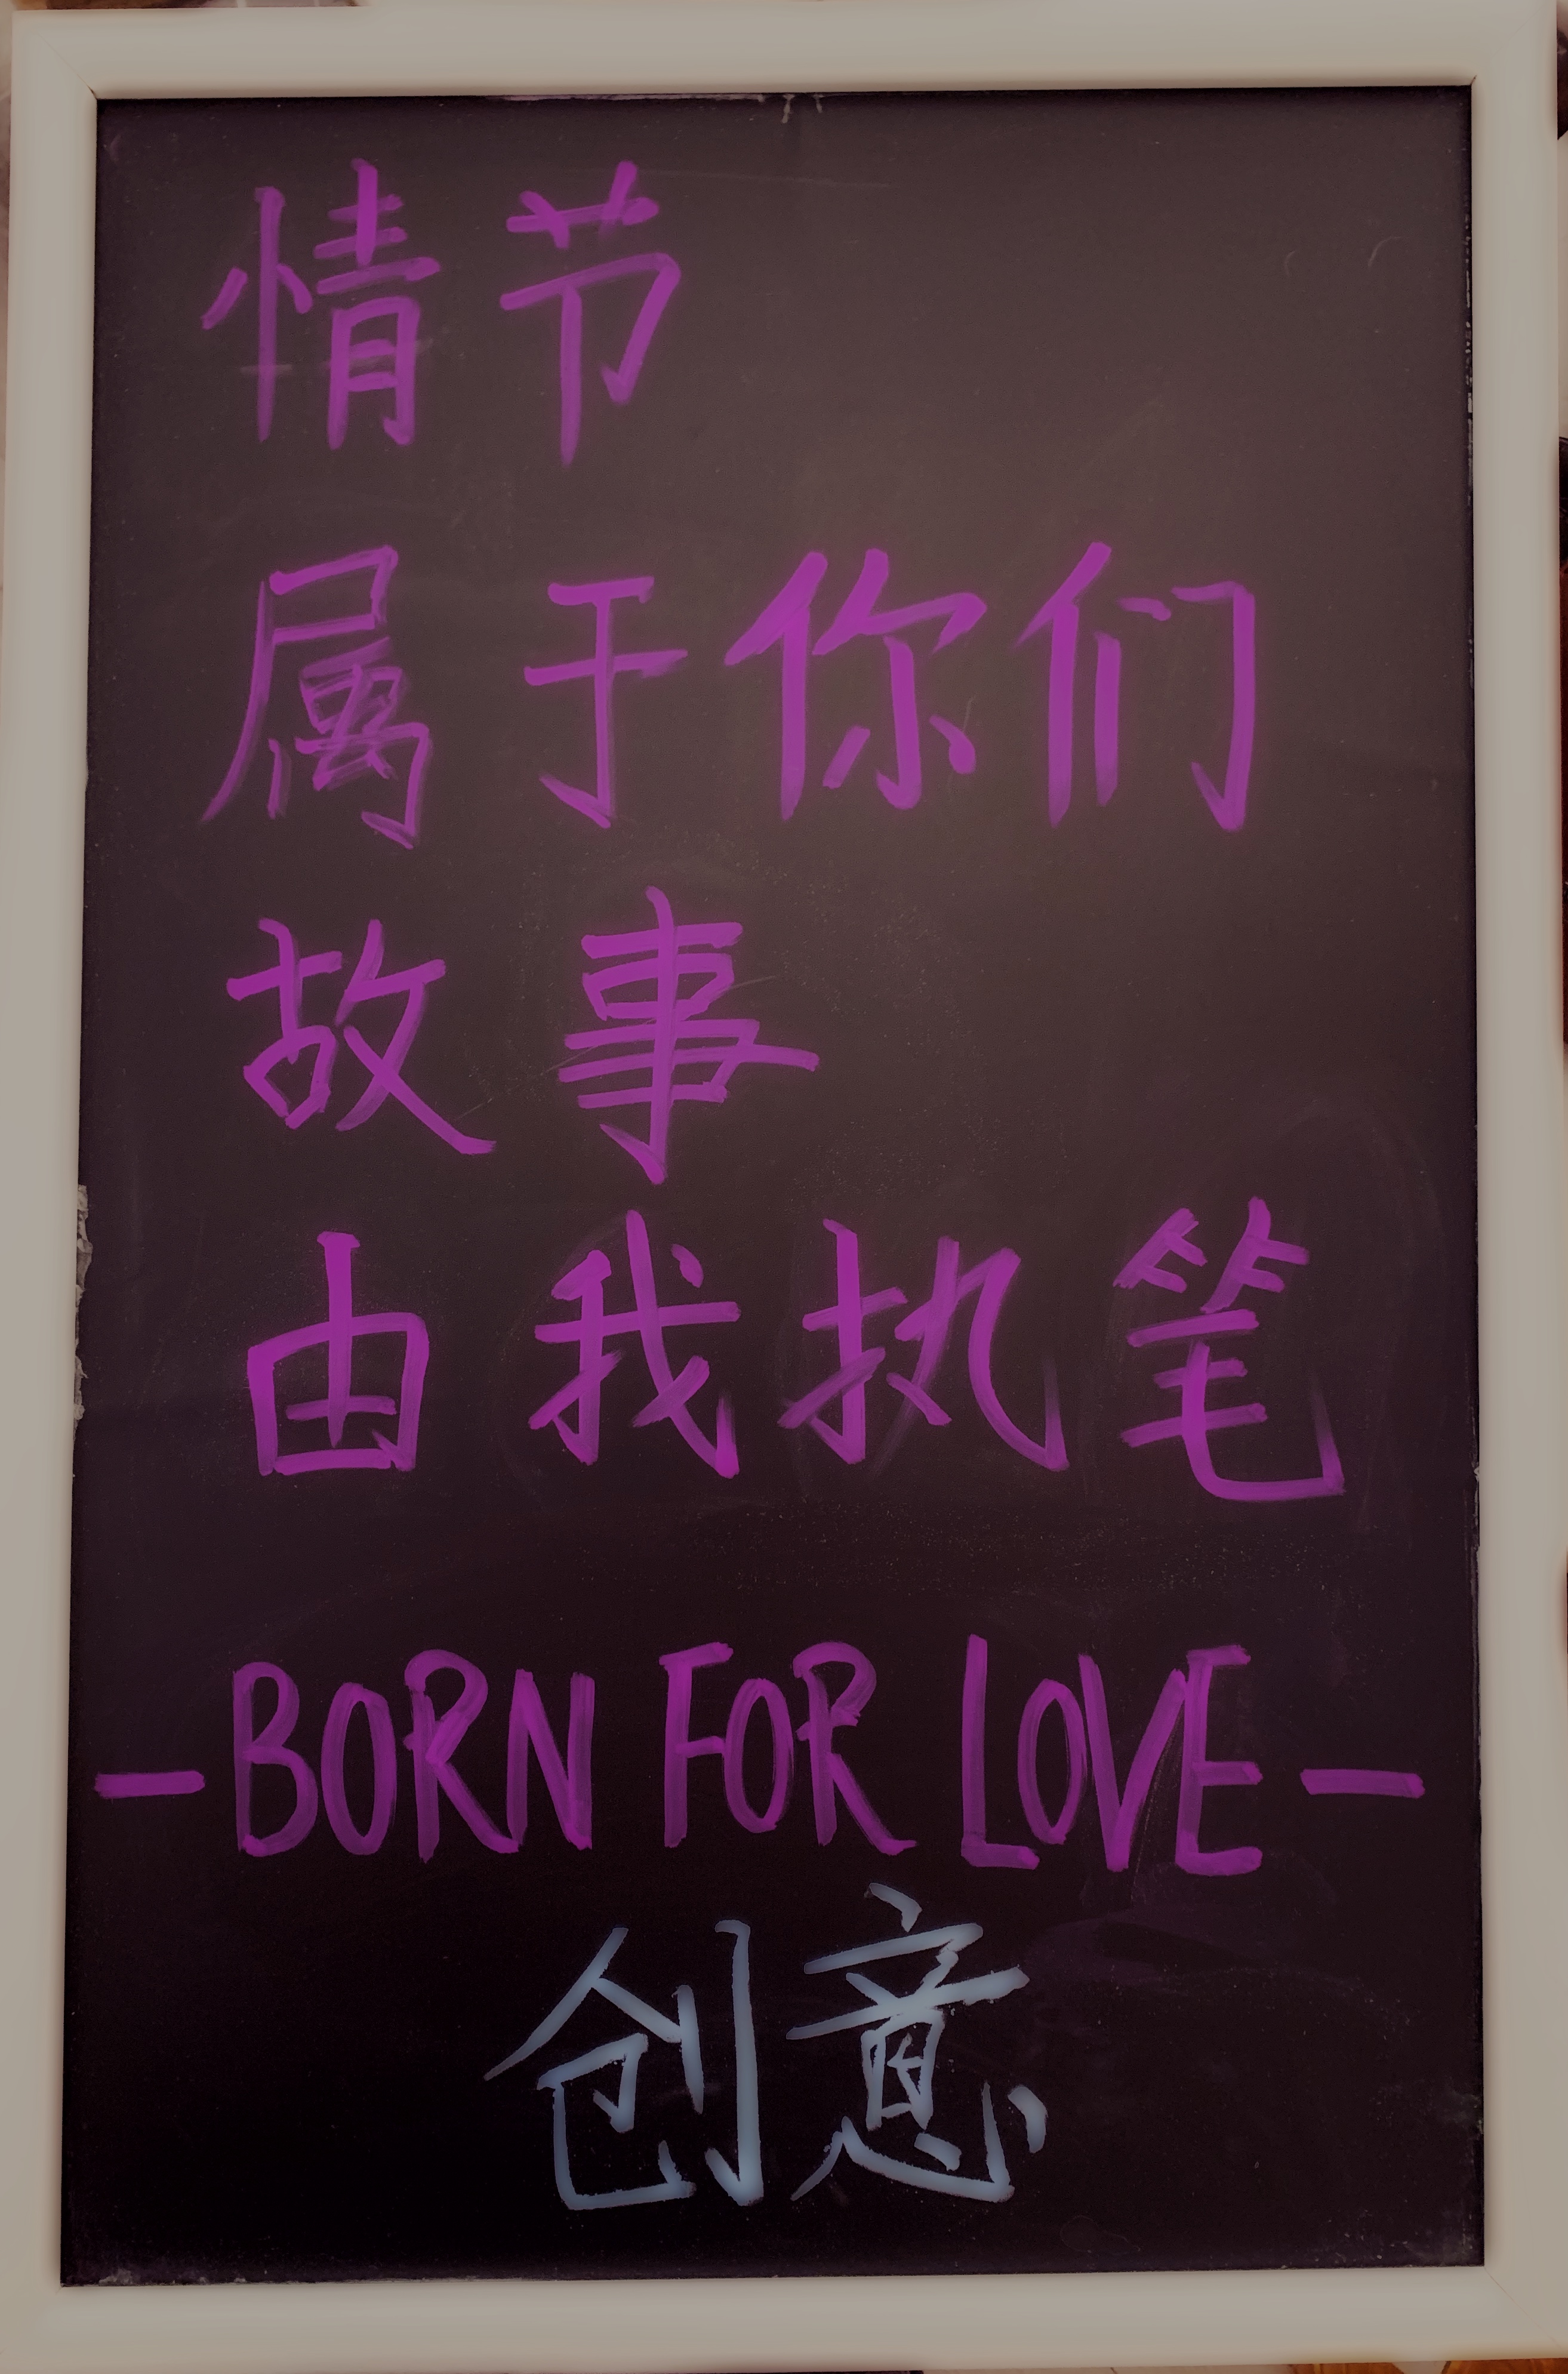 情节
属于你们
故事
由我执笔
-BORN FOR LOVE-
创意